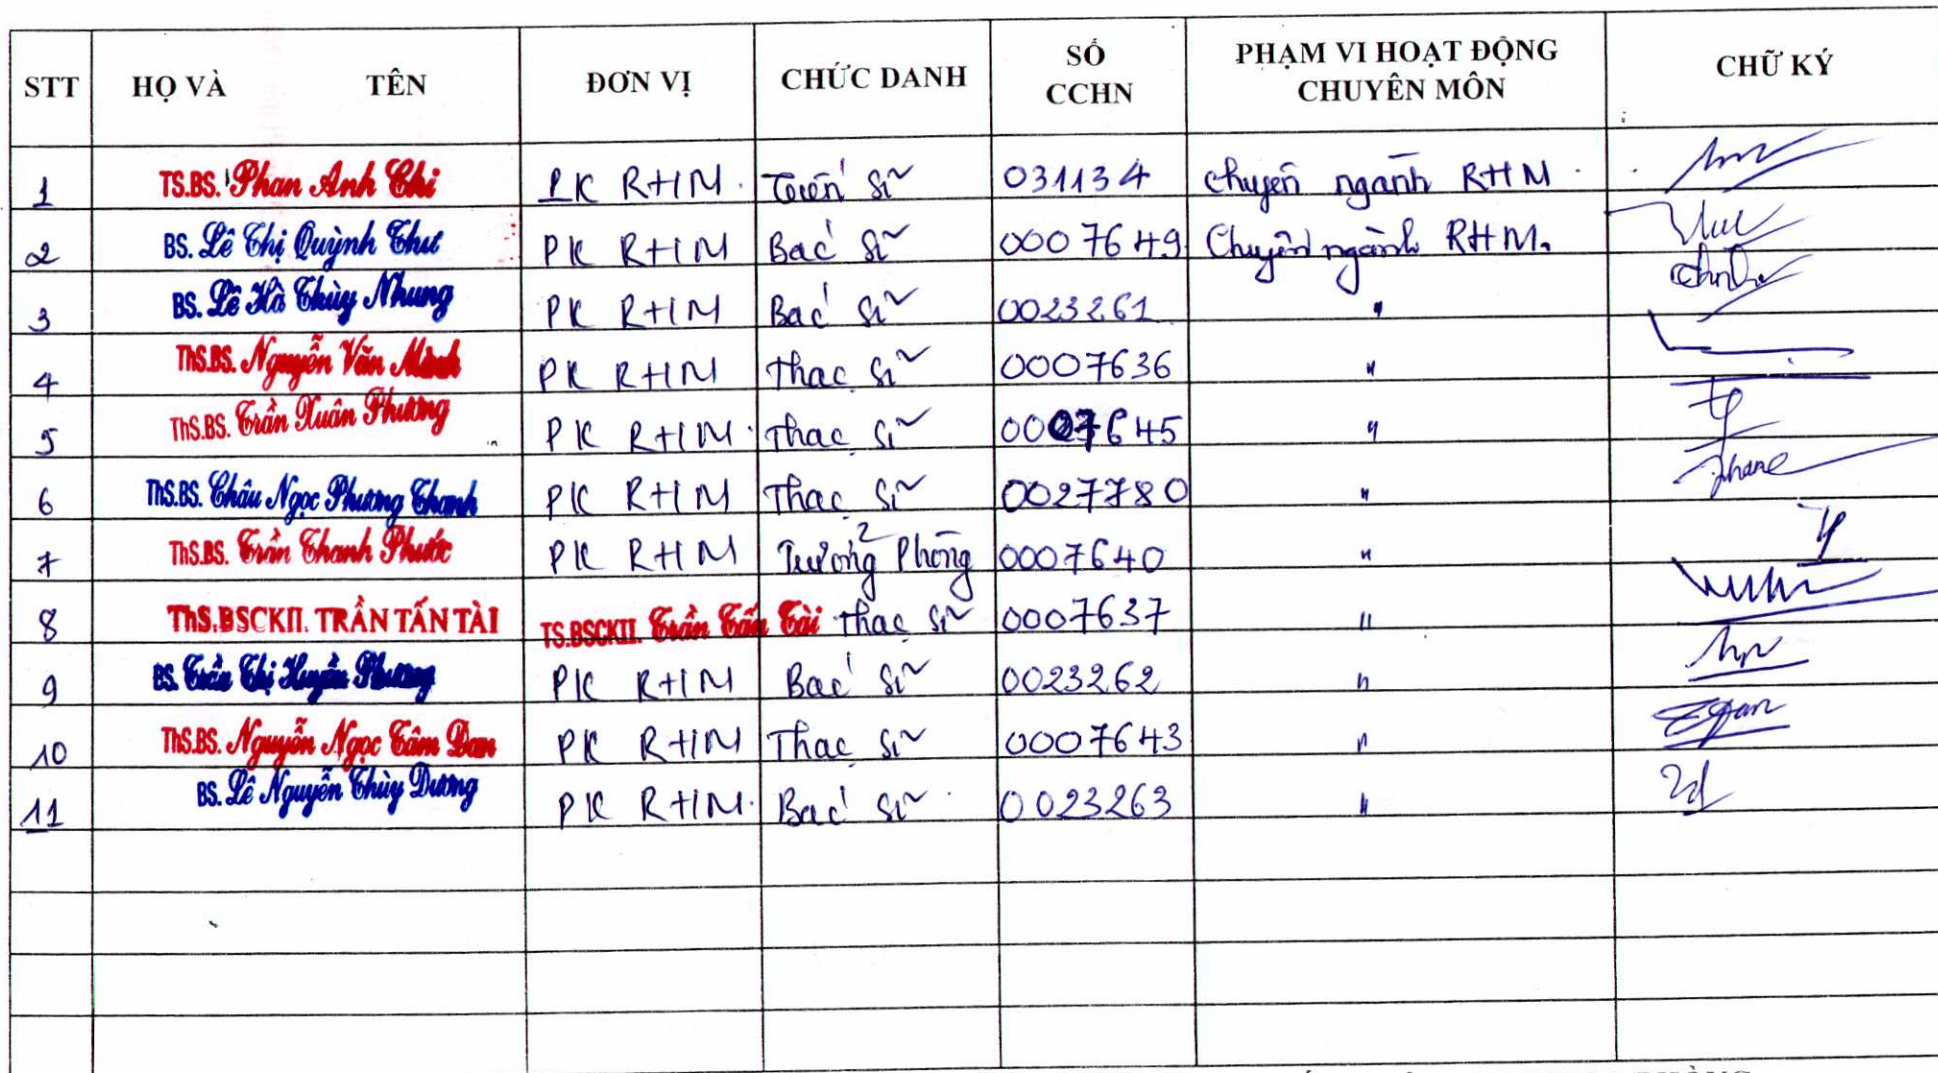 STT HỌ VÀ TÊN ĐƠN VỊ CHỨC DANH SỐ CCHN PHẠM VI HOẠT ĐỘNG CHUYÊN MÔN CHỮ KÝ
1 TS.BS. Phan Anh Chi PK RHM. Tiến sĩ 031134 Chuyên ngành RHM.
2 BS. Lê Thị Quỳnh Thư PK RHM Bác sĩ 0007649 Chuyên ngành RHM.
3 BS. Lê Hà Thùy Nhung PK RHM Bác sĩ 0023261 "
4 ThS.BS. Nguyễn Văn Minh PK RHM Thạc sĩ 0007636 "
5 ThS.BS. Trần Xuân Phương PK RHM. Thạc sĩ 0007645 "
6 ThS.BS. Châu Ngọc Phương Thanh PK RHM Thạc sĩ 0027780 "
7 ThS.BS. Trần Thanh Phước PK RHM Trưởng Phòng 0007640 "
8 ThS.BSCKII. TRẦN TẤN TÀI TS.BSCKII. Trần Tấn Tài Thạc sĩ 0007637 "
9 BS. Trần Thị Huyền Phương PK RHM Bác sĩ 0023262 "
10 ThS.BS. Nguyễn Ngọc Tâm Đan PK RHM Thạc sĩ 0007643 "
11 BS. Lê Nguyễn Thùy Dương PK RHM. Bác sĩ 0023263 "